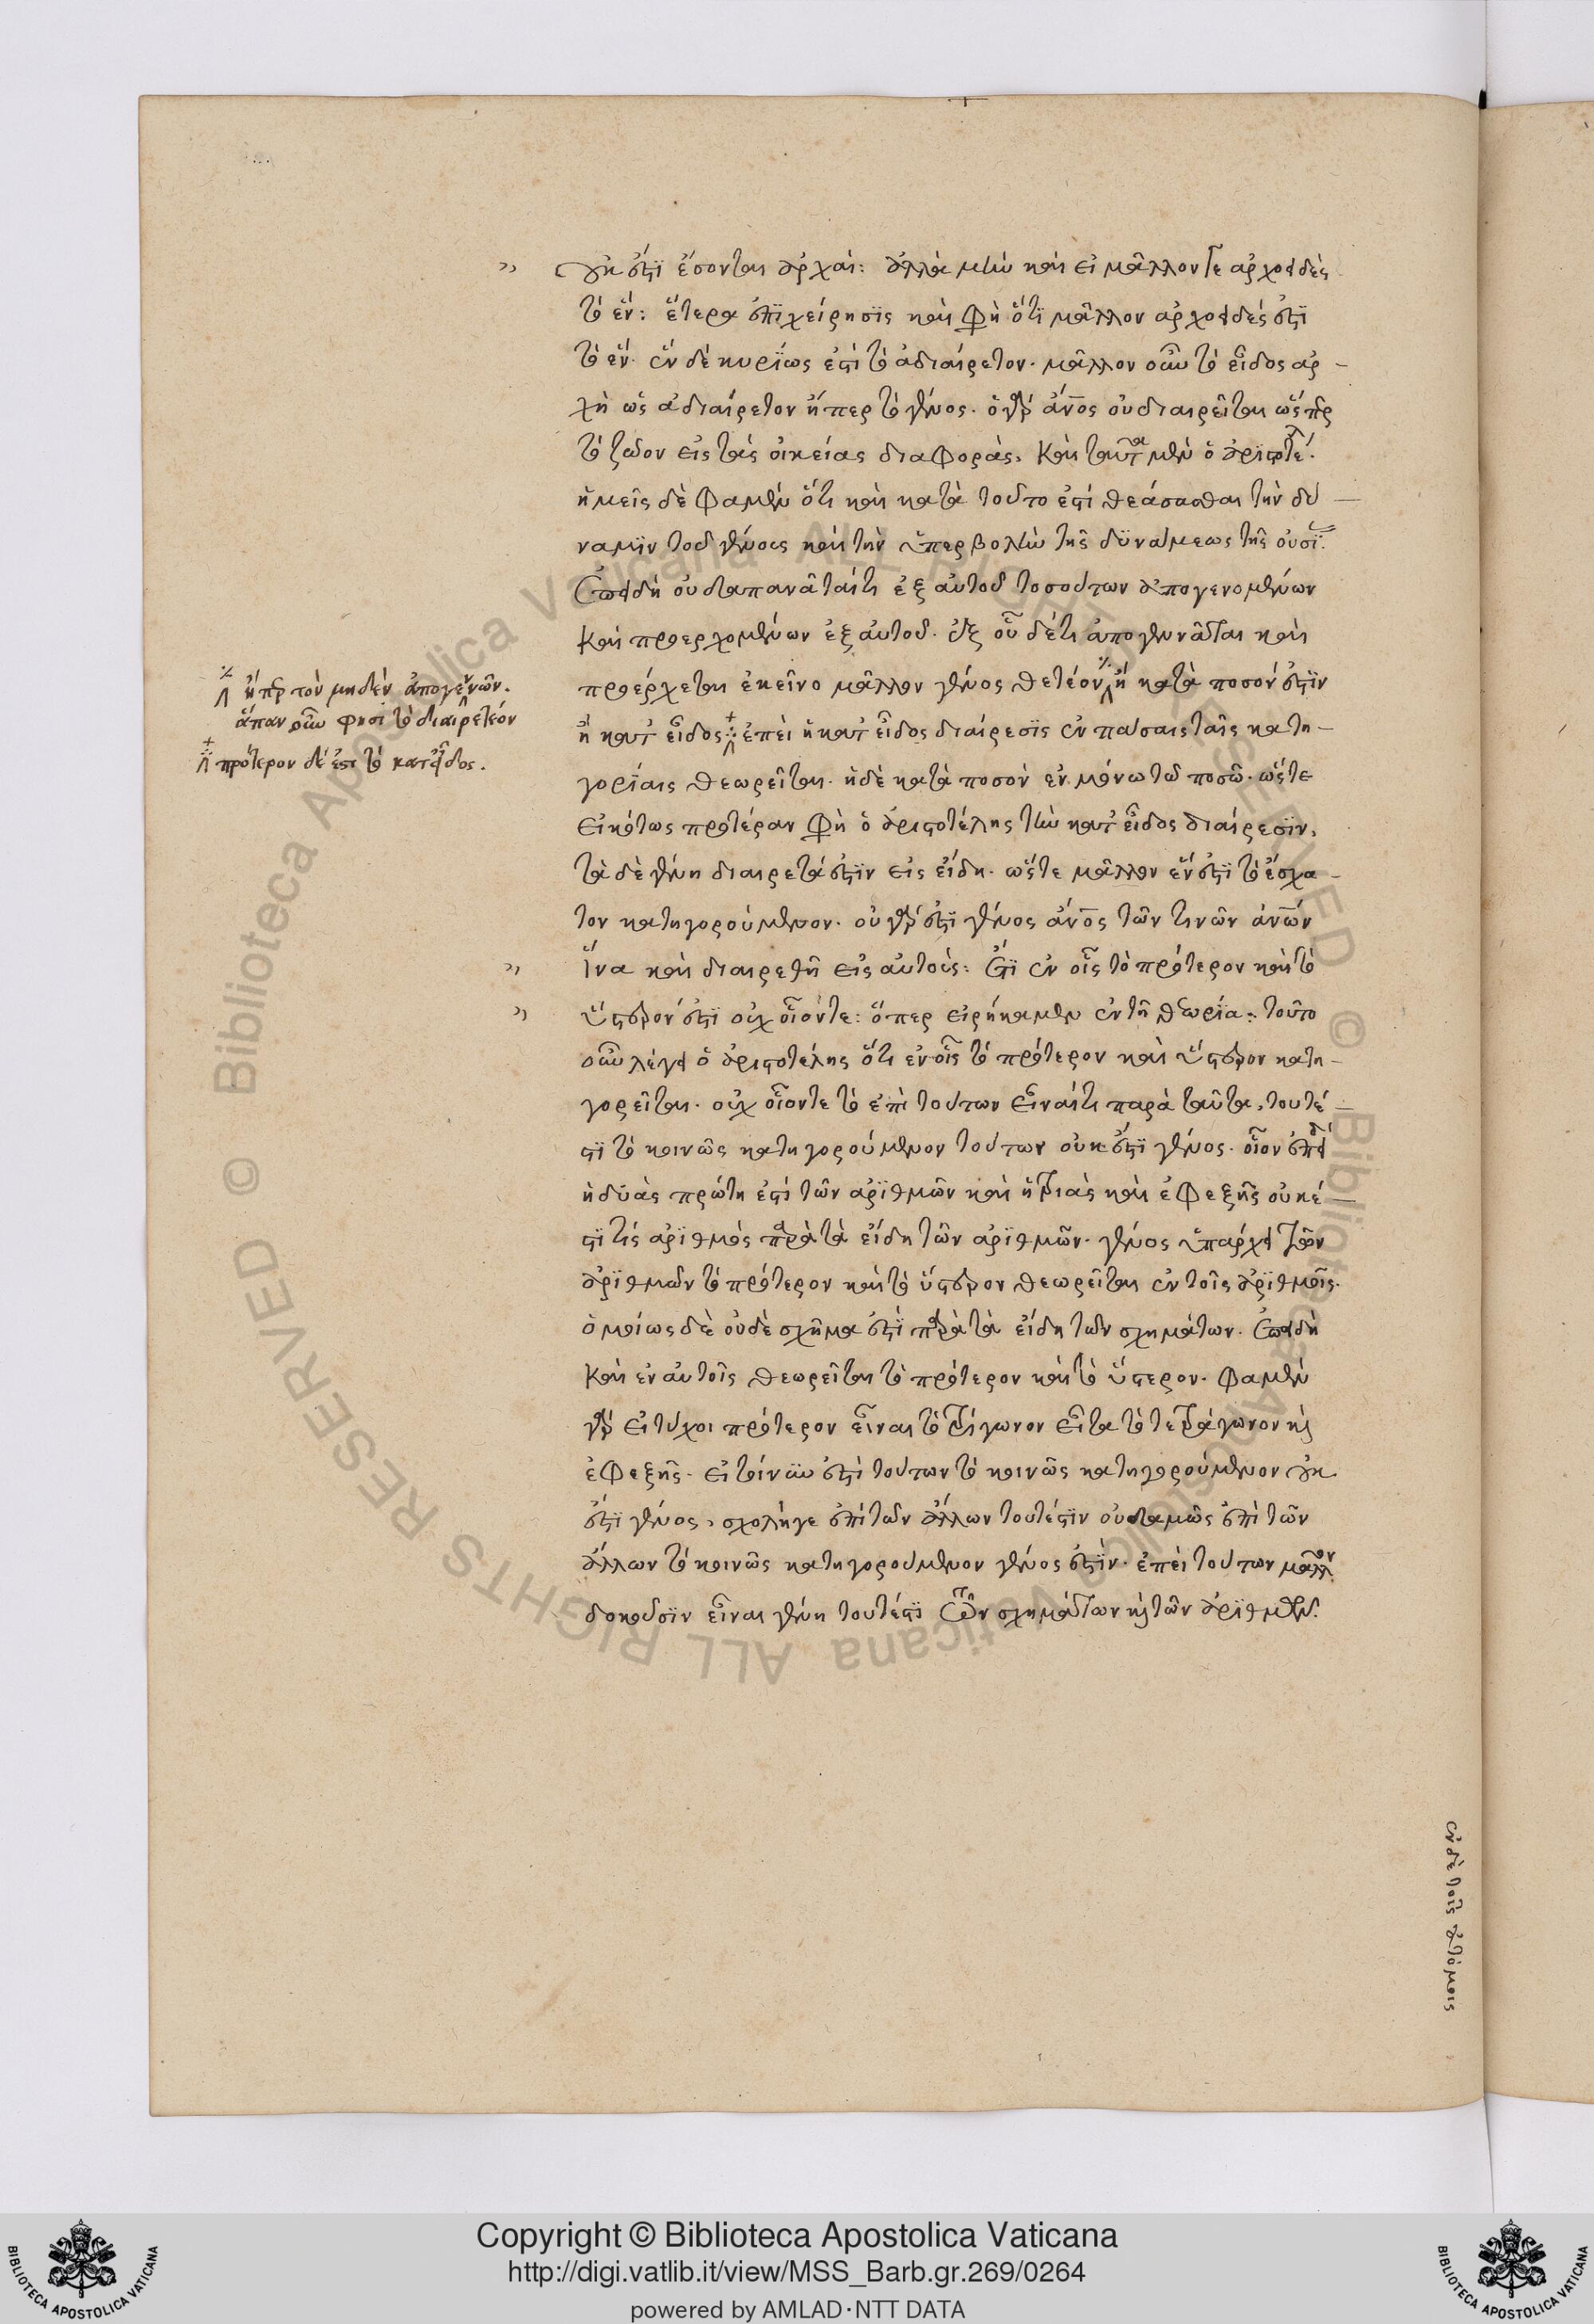 οὐκ ἐστὶ ἔσονται ἀρχαί: ἀλλὰ μὴν καὶ εἰ μᾶλλον γε ἀρχοειδὲς
τὸ ἕν: ἕτερα ἐπιχείρησις καὶ φησὶ ὅτι μᾶλλον ἀρχοειδές ἐστι
τὸ ἕν. ἓν δὲ κυρίως ἐστὶ τὸ ἀδιαίρετον. μᾶλλον οὖν τὸ εἶδος ἀρ-
χὴ ὡς ἀδιαίρετον ἤπερ τὸ γένος. ὁ γὰρ ἄνος οὐ διαιρεῖται ὥσπερ
τὸ ζῶον εἰς τὰς οἰκείας διαφοράς. καὶ ταῦτα μὲν ὁ ἀριστοτέλ.
ἡμεῖς δὲ φαμὲν ὅτι καὶ κατὰ τοῦτο ἐστὶ θεάσασθαι τὴν δύ-
ναμιν τοῦ γένους καὶ τὴν ὑπερβολὴν τῆς δυνάμεως τῆς οὐσί.
ἐπειδὴ οὐ δαπανᾶταί τι ἐξ αὐτοῦ τοσούτων ἀπογενομένων
καὶ προερχομένων ἐξ αὐτοῦ. ἐξ οὗ δέ τι ἀπογεννᾶται καὶ
προέρχεται ἐκεῖνο μᾶλλον γένος θετέον ἢ κατὰ ποσόν ἐστιν
ἢ κατ' εἶδος ἐπεὶ ἡ κατ' εἶδος διαίρεσις ἐν πάσαις ταῖς κατη-
γορίαις θεωρεῖται. ἡ δὲ κατὰ ποσὸν ἐν μόνω τῶ ποσῶ. ὥστε
εἰκότως προτέραν φησὶ ὁ ἀριστοτέλης τὴν κατ' εἶδος διαίρεσιν.
τὰ δὲ γένη διαιρετά ἐστιν εἰς εἴδη. ὥστε μᾶλλον ἕν ἐστι τὸ ἔσχα-
τον κατηγορούμενον. οὐ γάρ ἐστι γένος ἄνος τῶν τινῶν ἀνων
ἵνα καὶ διαιρεθῆ εἰς αὐτούς: ἔτι ἐν οἷς τὸ πρότερον καὶ τὸ
ὕστερόν ἐστι οὐχ οἷόν τε: ὅπερ εἰρήκαμεν ἐν τῆ θεωρία: τοῦτο
οὖν λέγει ὁ ἀριστοτέλης ὅτι ἐν οἷς τὸ πρότερον καὶ ὕστερον κατη-
γορεῖται. οὐχ οἷόν τε τὸ ἐπὶ τούτων εἶναί τι παρὰ ταῦτα, τουτέ-
στι τὸ κοινῶς κατηγορούμενον τούτων οὐκ ἐστὶ γένος. οἷον ἐπεὶ
ἡ δυὰς πρώτη ἐστὶ τῶν ἀριθμῶν καὶ ἡ τριὰς καὶ ἐφεξῆς οὐκ ἔ-
στι τίς ἀριθμὸς παρὰ τὰ εἴδη τῶν ἀριθμῶν. γένος ὑπάρχει τῶν
ἀριθμῶν τὸ πρότερον καὶ τὸ ὕστερον θεωρεῖται ἐν τοῖς ἀριθμοῖς.
ὁμοίως δὲ οὐδὲ σχῆμα ἐστὶ παρὰ τὰ εἴδη τῶν σχημάτων. ἐπειδὴ
καὶ ἐν αὐτοῖς θεωρεῖται τὸ πρότερον καὶ τὸ ὕστερον. φαμὲν
γὰρ εἰ τύχοι πρότερον εἶναι τὸ τρίγωνον εἶτα τὸ τετράγωνον καὶ
ἐφεξῆς. εἰ τοίνυν ἐπὶ τούτων τὸ κοινῶς κατηγορούμενον οὐκ
ἐστὶ γένος, σχολῆ γε ἐπὶ τῶν ἄλλων τουτέστιν οὐδαμῶς ἐπὶ τῶν
ἄλλων τὸ κοινῶς κατηγορούμενον γένος ἐστὶν. ἐπεὶ τούτων μᾶλλον
δοκοῦσιν εἶναι γένη τουτέστι τῶν σχημάτων καὶ τῶν ἀριθμῶν.
ἤπερ τὸν μηδὲν ἀπογεννῶν.
ἅπαν οὖν φησὶ τὸ διαιρετέον
πρότερον δέ ἐστι τὸ κατ' εἶδος.
ἐν δὲ τοῖς ἀτόμοις
Copyright © Biblioteca Apostolica Vaticana
http://digi.vatlib.it/view/MSS_Barb.gr.269/0264
powered by AMLAD·NTT DATA